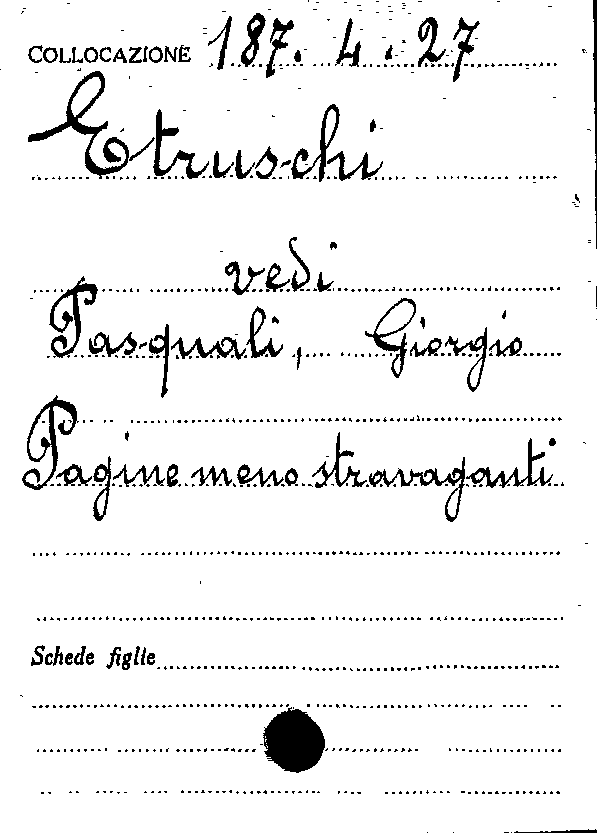 COLLOCAZIONE 187. 4. 27
Etruschi
vedi
Pasquali, Giorgio
Pagine meno stravaganti
Schede figlie